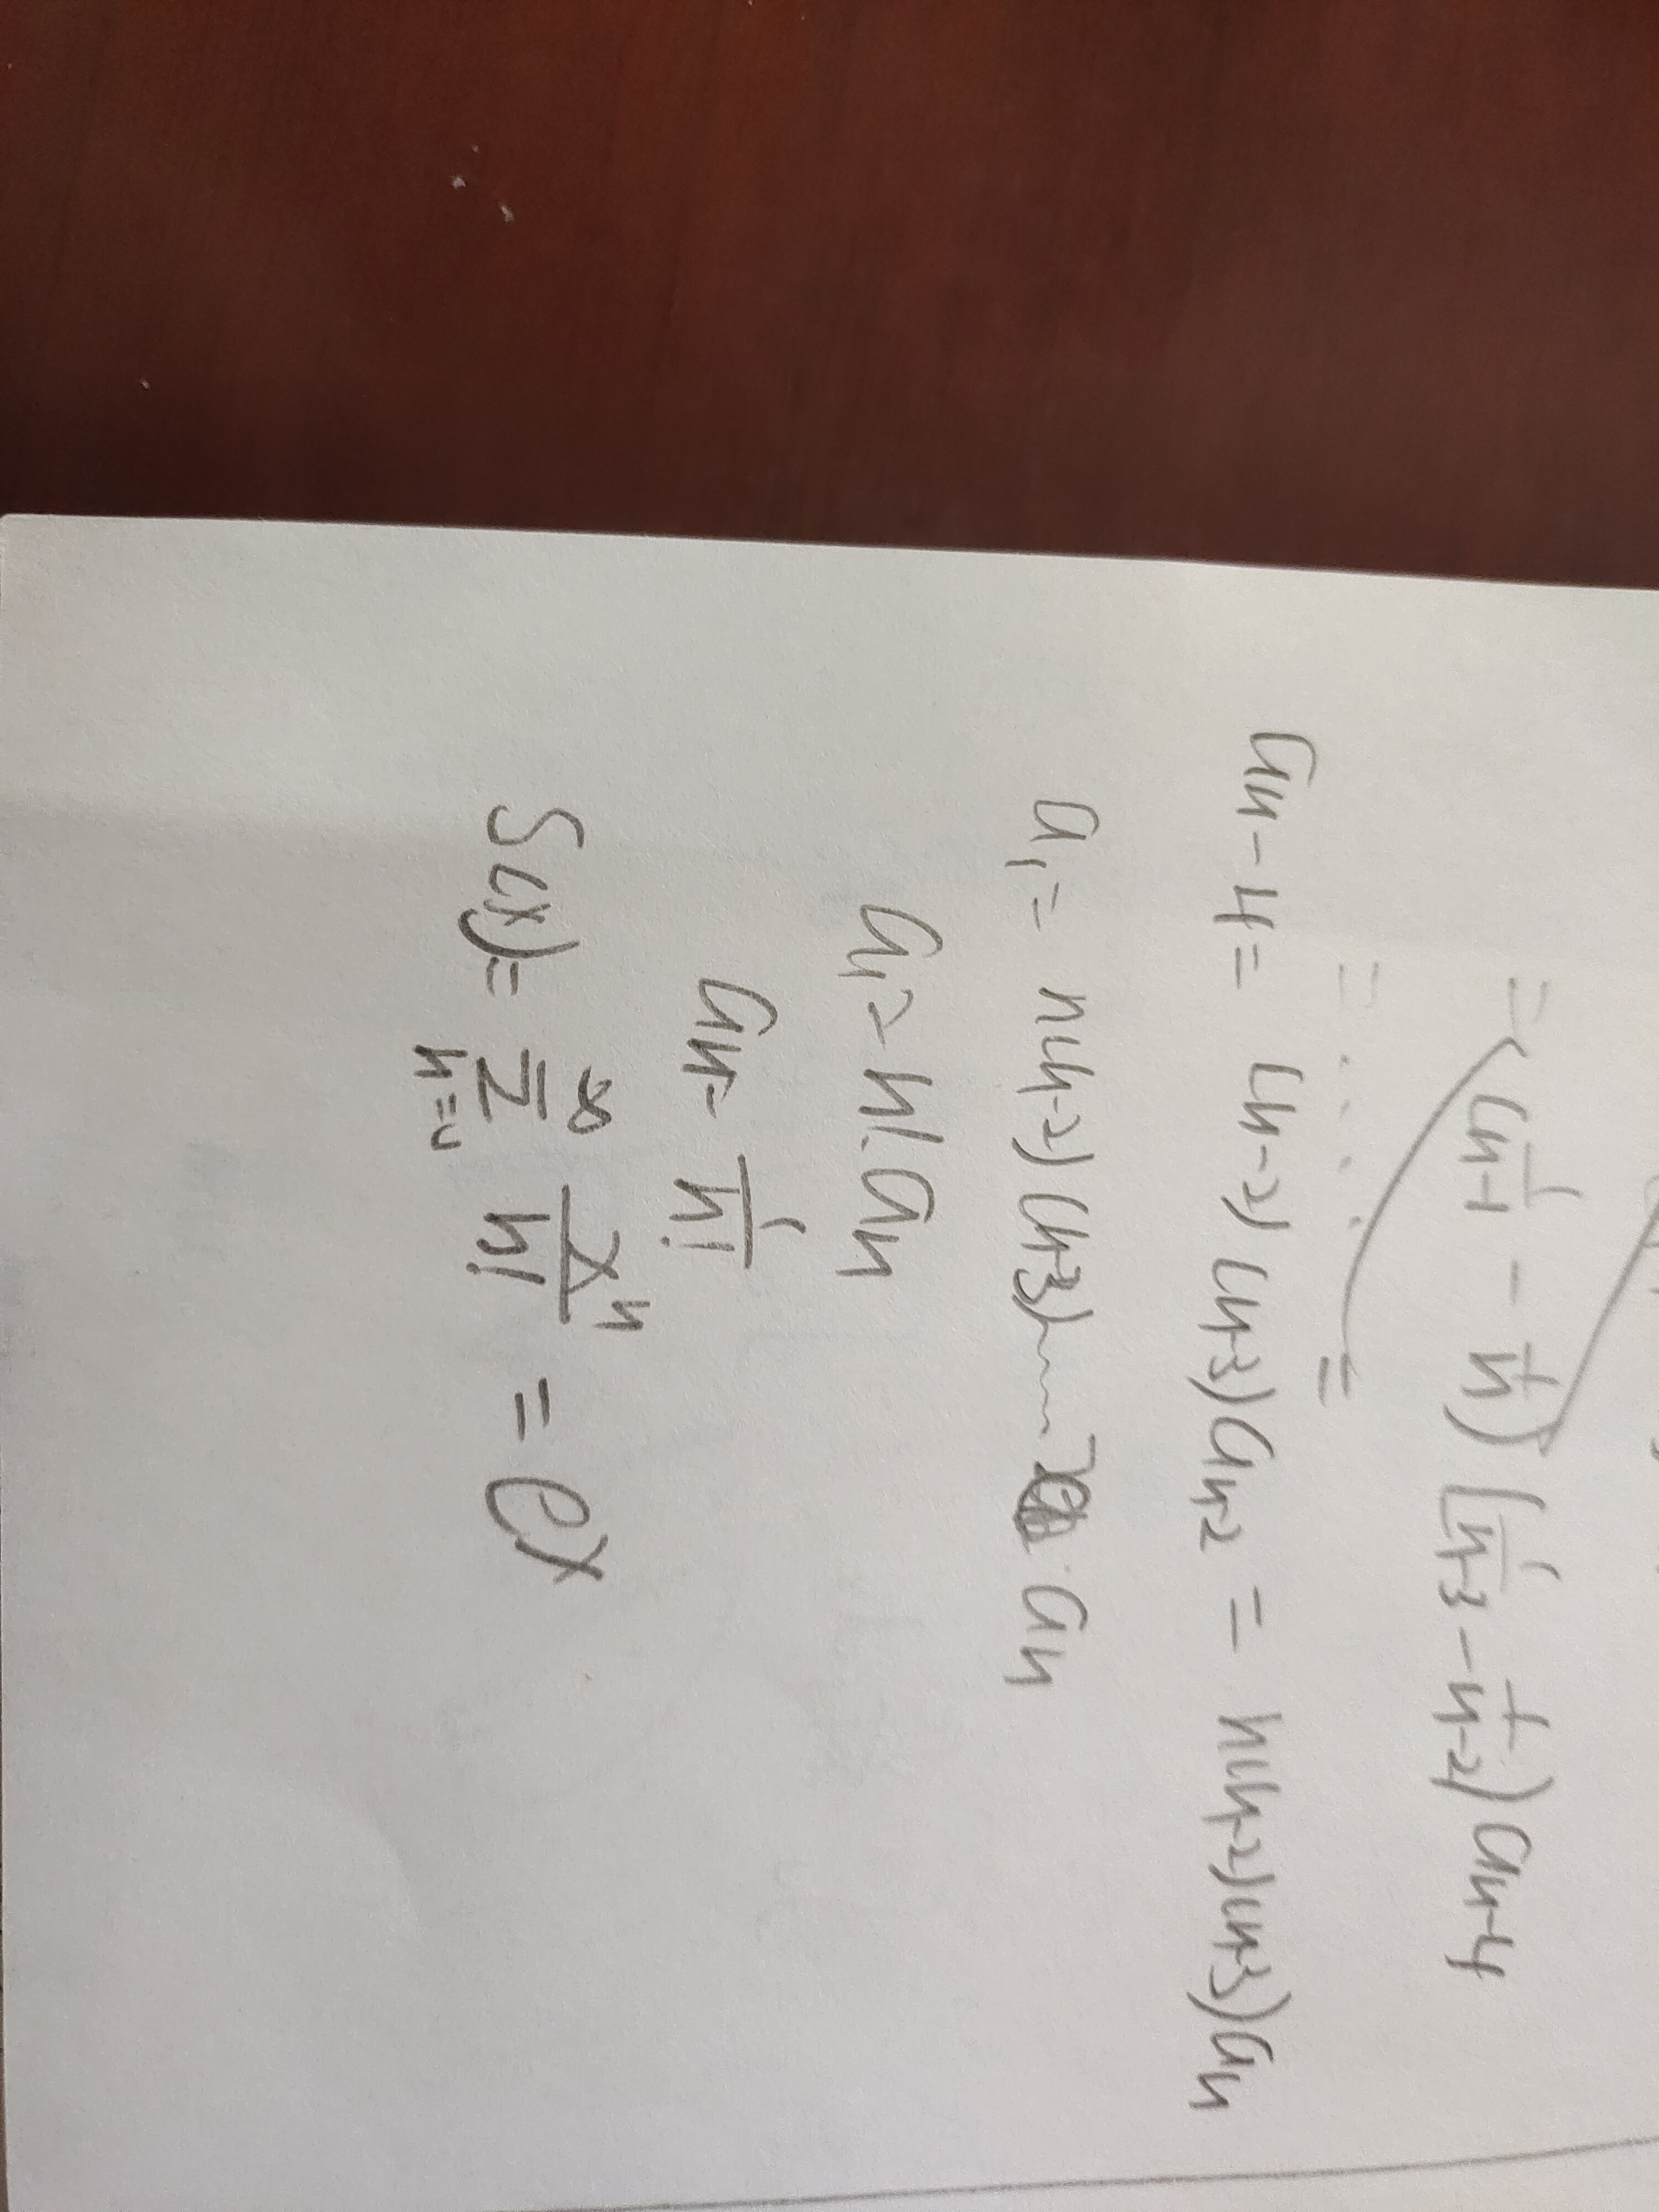 = (1/(n-1) - 1/n) (1/(n-3) - 1/(n-2)) a_{n-4}
= ..... =
a_{n-4} = (n-2)(n-3) a_{n-2} = n(n-2)(n-3) a_n
a_1 = n(n-2)(n-3) ...... a_n
a_1 = n! a_n
a_n = 1/n!
S(x) = ∑_{n=0}^{∞} x^n/n! = e^x